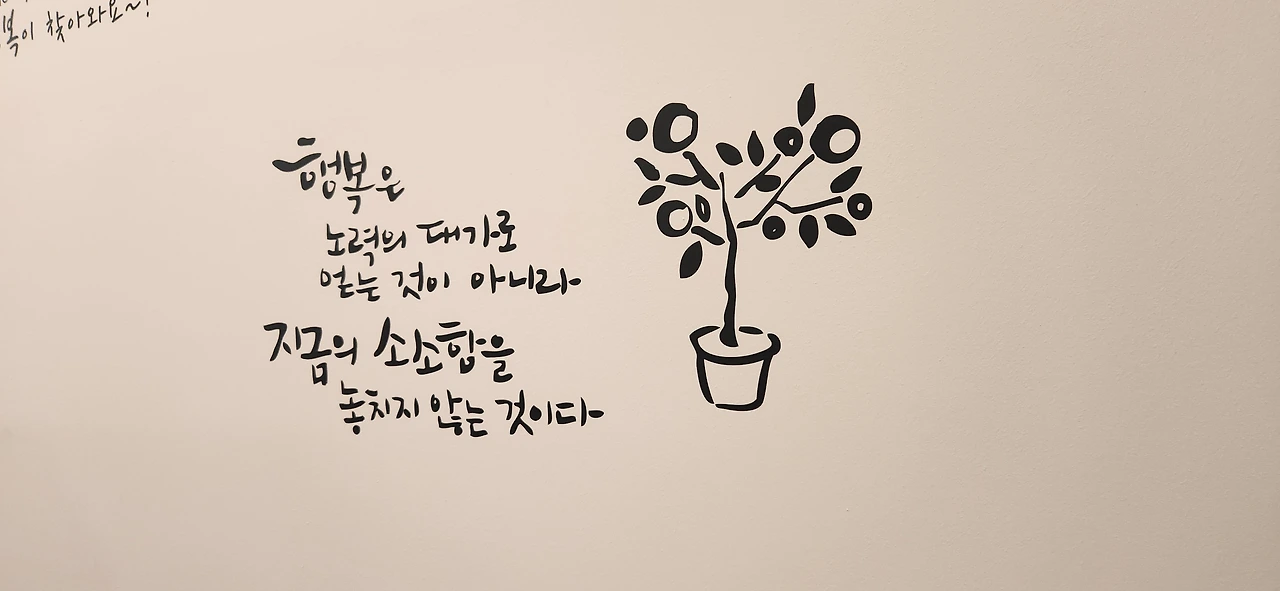 복이 찾아와요~!
행복은
노력의 대가로
얻는 것이 아니라
지금의 소소함을
놓치지 않는 것이다